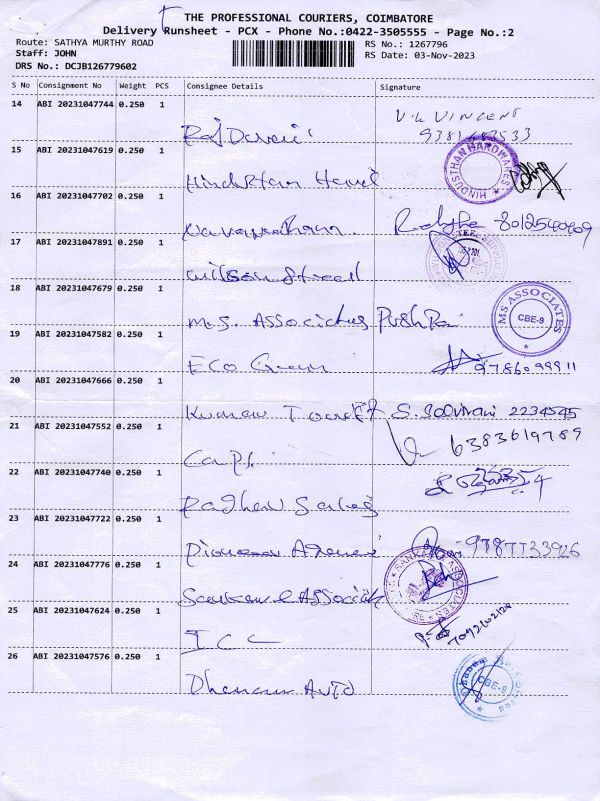 THE PROFESSIONAL COURIERS, COIMBATORE
Delivery Runsheet - PCX - Phone No.:0422-3505555 - Page No.:2
Route: SATHYA MURTHY ROAD
Staff: JOHN
DRS No.: DCJB126779602
RS No.: 1267796
RS Date: 03-Nov-2023
S No Consignment No Weight PCS Consignee Details Signature
14 ABI 20231047744 0.250 1
V. VINCENT
15 ABI 20231047619 0.250 1
HINDUSTHAN HARDWARES
16 ABI 20231047702 0.250 1
8012540409
17 ABI 20231047891 0.250 1
Wilson Street
18 ABI 20231047679 0.250 1
M.S. Associates Pushpa
MS ASSOCIATES
CBE-9
19 ABI 20231047582 0.250 1
Eco Green
20 ABI 20231047666 0.250 1
Kumar 2234545
21 ABI 20231047552 0.250 1
6383619789
22 ABI 20231047740 0.250 1
Raghav Sales
23 ABI 20231047722 0.250 1
Pioneer Agencies 9787733926
24 ABI 20231047776 0.250 1
Sankar Associates
SANKAR ASSOCIATES
25 ABI 20231047624 0.250 1
ICC
7092102120
26 ABI 20231047576 0.250 1
Auto
CBE-9